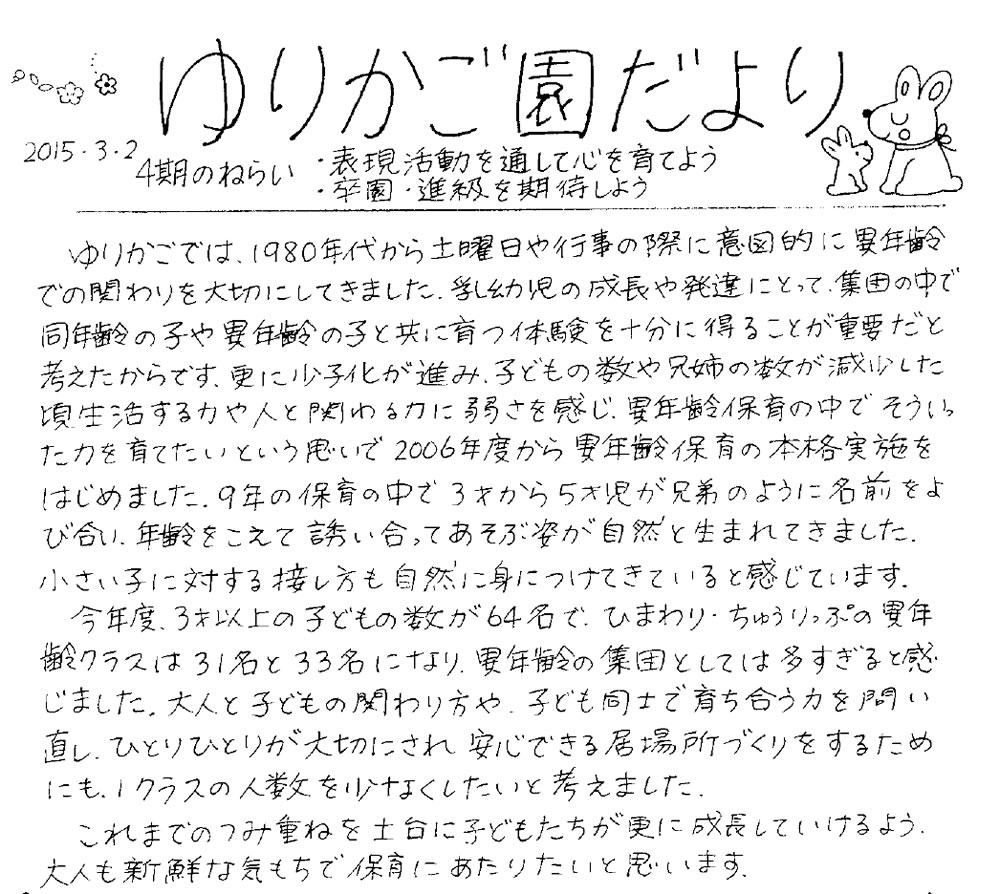 ゆりかご園だより
2015・3・2
4期のねらい ・表現活動を通して心を育てよう
・卒園・進級を期待しよう
ゆりかごでは、1980年代から土曜日や行事の際に意図的に異年齢
での関わりを大切にしてきました。乳幼児の成長や発達にとって、集団の中で
同年齢の子や異年齢の子と共に育つ体験を十分に得ることが重要だと
考えたからです。更に少子化が進み、子どもの数や兄姉の数が減少した
頃生活する力や人と関わる力に弱さを感じ、異年齢保育の中でそういっ
た力を育てたいという思いで2006年度から異年齢保育の本格実施を
はじめました。9年の保育の中で3才から5才児が兄弟のように名前をよ
び合い、年齢をこえて誘い合ってあそぶ姿が自然と生まれてきました。
小さい子に対する接し方も自然に身につけてきていると感じています。
今年度、3才以上の子どもの数が64名で、ひまわり・ちゅうりっぷの異年
齢クラスは31名と33名になり、異年齢の集団としては多すぎると感
じました。大人と子どもの関わり方や、子ども同士で育ち合う力を問い
直し、ひとりひとりが大切にされ 安心できる居場所づくりをするため
にも、1クラスの人数を少なくしたいと考えました。
これまでのつみ重ねを土台に子どもたちが更に成長していけるよう、
大人も新鮮な気もちで保育にあたりたいと思います。